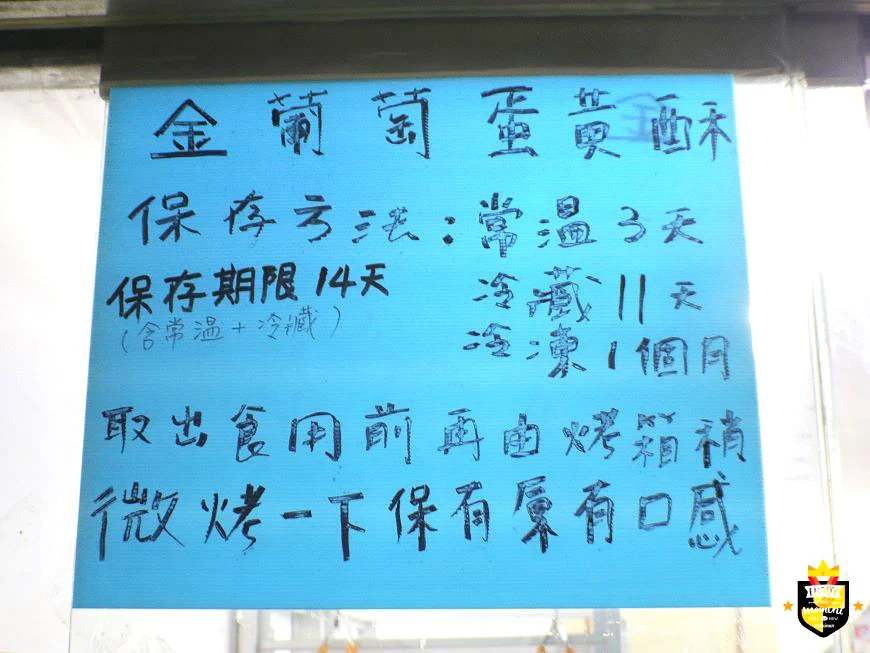 金葡萄蛋黃酥
保存方法：常溫3天
保存期限14天 冷藏11天
(含常溫+冷藏)
冷凍1個月
取出食用前再由烤箱稍
微烤一下保有原有口感